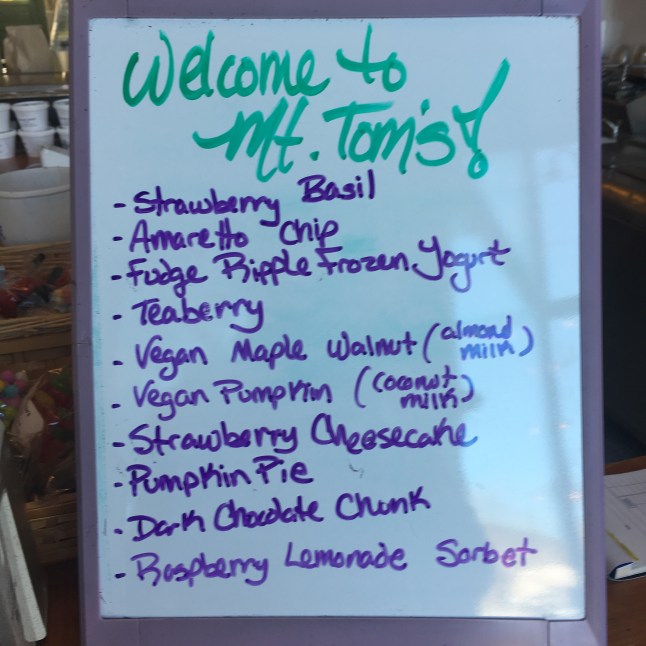 Welcome to
Mt. Tom's!
- Strawberry Basil
- Amaretto Chip
- Fudge Ripple Frozen Yogurt
- Teaberry
- Vegan Maple Walnut (almond milk)
- Vegan Pumpkin (coconut milk)
- Strawberry Cheesecake
- Pumpkin Pie
- Dark Chocolate Chunk
- Raspberry Lemonade Sorbet